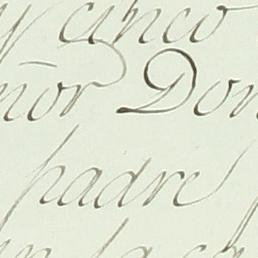 y cinco
nõr Don
padre